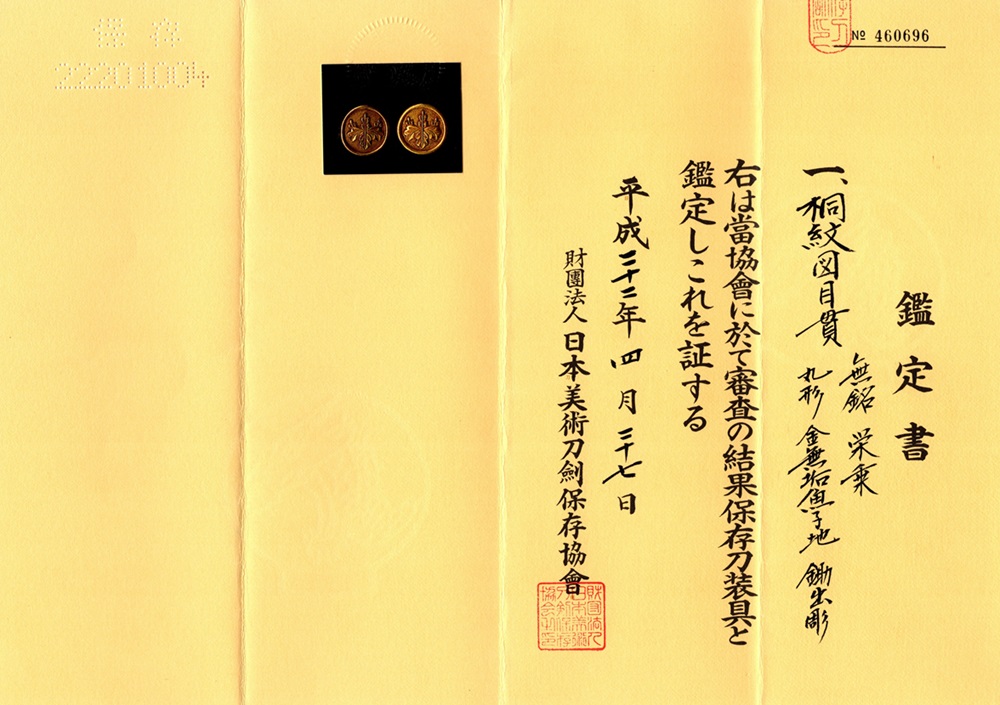 № 460696
鑑定書
一、桐紋図目貫
無銘 栄乗
丸形 金無垢魚子地 鋤出彫
右は當協會に於て審査の結果保存刀装具と
鑑定しこれを証する
平成二十二年四月二十七日
財團法人 日本美術刀劍保存協會
保存
22201004